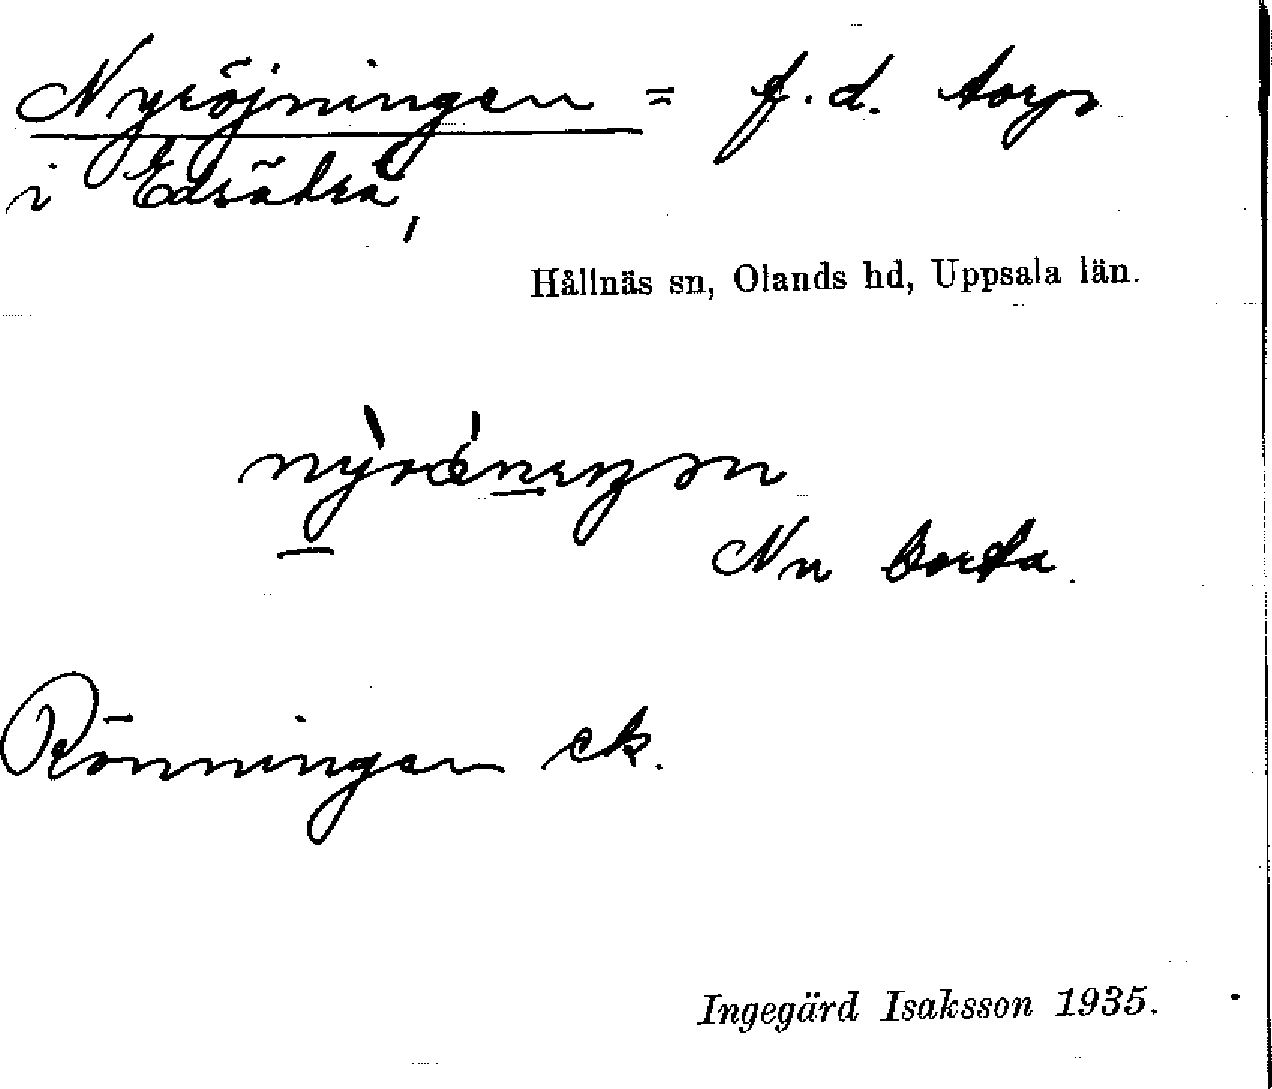 Nyröjningen = f.d. torp
i Edsätra,
Hållnäs sn, Olands hd, Uppsala län.
Nu borta.
Rönningen ek.
Ingegärd Isaksson 1935.